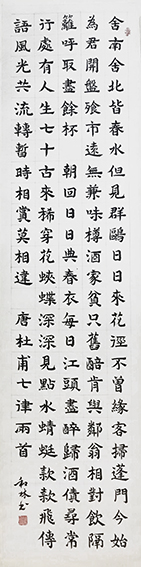 舍南舍北皆春水但見群鷗日日來花徑不曾緣客掃蓬門今始
為君開盤飧市遠無兼味樽酒家貧只舊醅肯與鄰翁相對飲隔
籬呼取盡餘杯 朝回日日典春衣每日江頭盡醉歸酒債尋常
行處有人生七十古來稀穿花蛺蝶深深見點水蜻蜓款款飛傳
語風光共流轉暫時相賞莫相違 唐杜甫七律兩首